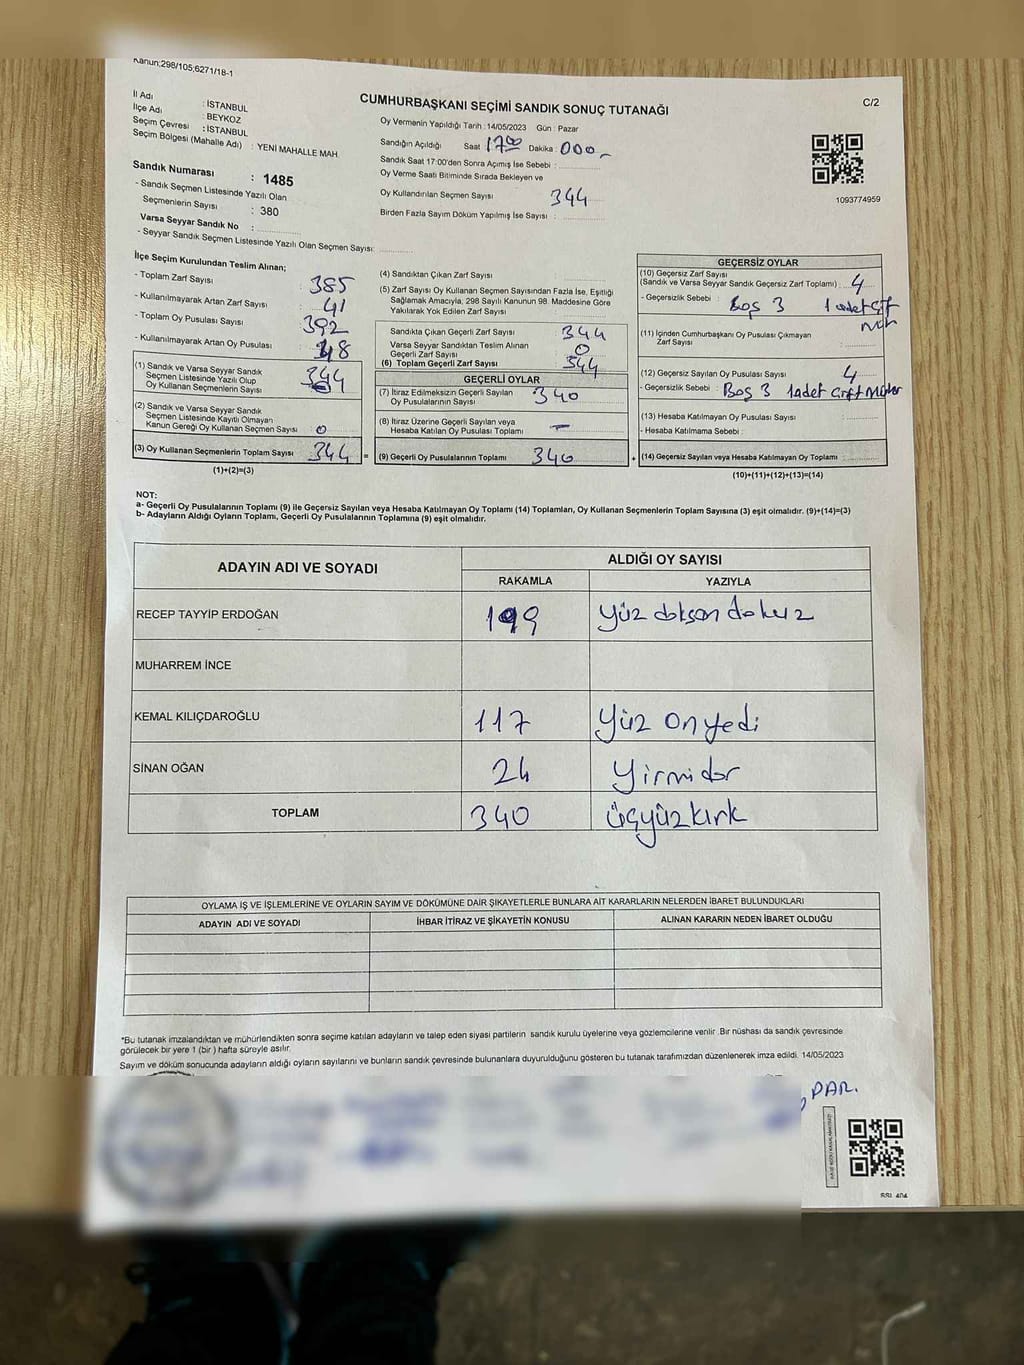 Kanun;298/105;6271/18-1
İl Adı : İSTANBUL
İlçe Adı : BEYKOZ
Seçim Çevresi : İSTANBUL
Seçim Bölgesi (Mahalle Adı) : YENİ MAHALLE MAH.
Sandık Numarası : 1485
- Sandık Seçmen Listesinde Yazılı Olan
Seçmenlerin Sayısı : 380
Varsa Seyyar Sandık No :
- Seyyar Sandık Seçmen Listesinde Yazılı Olan Seçmen Sayısı:
CUMHURBAŞKANI SEÇİMİ SANDIK SONUÇ TUTANAĞI
C/2
Oy Vermenin Yapıldığı Tarih : 14/05/2023 Gün : Pazar
Sandığın Açıldığı Saat 17 00 Dakika : 000
Sandık Saat 17:00'den Sonra Açımış İse Sebebi :
Oy Verme Saati Bitiminde Sırada Bekleyen ve
Oy Kullandırılan Seçmen Sayısı 344
Birden Fazla Sayım Döküm Yapılmış İse Sayısı :
1093774959
İlçe Seçim Kurulundan Teslim Alınan;
- Toplam Zarf Sayısı : 385
- Kullanılmayarak Artan Zarf Sayısı : 41
- Toplam Oy Pusulası Sayısı : 392
- Kullanılmayarak Artan Oy Pusulası : 48
(1) Sandık ve Varsa Seyyar Sandık
Seçmen Listesinde Yazılı Olup
Oy Kullanan Seçmenlerin Sayısı : 344
(2) Sandık ve Varsa Seyyar Sandık
Seçmen Listesinde Kayıtlı Olmayan
Kanun Gereği Oy Kullanan Seçmen Sayısı : 0
(3) Oy Kullanan Seçmenlerin Toplam Sayısı : 344 =
(1)+(2)=(3)
(4) Sandıktan Çıkan Zarf Sayısı :
(5) Zarf Sayısı Oy Kullanan Seçmen Sayısından Fazla İse, Eşitliği
Sağlamak Amacıyla; 298 Sayılı Kanunun 98. Maddesine Göre
Yakılarak Yok Edilen Zarf Sayısı :
Sandıkta Çıkan Geçerli Zarf Sayısı : 344
Varsa Seyyar Sandıktan Teslim Alınan
Geçerli Zarf Sayısı : 0
(6) Toplam Geçerli Zarf Sayısı : 344
GEÇERLİ OYLAR
(7) İtiraz Edilmeksizin Geçerli Sayılan
Oy Pusulalarının Sayısı : 340
(8) İtiraz Üzerine Geçerli Sayılan veya
Hesaba Katılan Oy Pusulası Toplamı : —
(9) Geçerli Oy Pusulalarının Toplamı : 340 +
GEÇERSİZ OYLAR
(10) Geçersiz Zarf Sayısı
(Sandık ve Varsa Seyyar Sandık Geçersiz Zarf Toplamı) : 4
- Geçersizlik Sebebi : Boş 3 1 adet çift
(11) İçinden Cumhurbaşkanı Oy Pusulası Çıkmayan
Zarf Sayısı :
(12) Geçersiz Sayılan Oy Pusulası Sayısı : 4
- Geçersizlik Sebebi : Boş 3 1 adet çift
(13) Hesaba Katılmayan Oy Pusulası Sayısı :
- Hesaba Katılmama Sebebi :
(14) Geçersiz Sayılan veya Hesaba Katılmayan Oy Toplamı :
(10)+(11)+(12)+(13)=(14)
NOT:
a- Geçerli Oy Pusulalarının Toplamı (9) ile Geçersiz Sayılan veya Hesaba Katılmayan Oy Toplamı (14) Toplamları, Oy Kullanan Seçmenlerin Toplam Sayısına (3) eşit olmalıdır. (9)+(14)=(3)
b- Adayların Aldığı Oyların Toplamı, Geçerli Oy Pusulalarının Toplamına (9) eşit olmalıdır.
ADAYIN ADI VE SOYADI ALDIĞI OY SAYISI
RAKAMLA YAZIYLA
RECEP TAYYİP ERDOĞAN 199 Yüz doksan dokuz
MUHARREM İNCE
KEMAL KILIÇDAROĞLU 117 Yüz onyedi
SİNAN OĞAN 24 Yirmidör
TOPLAM 340 üçyüzkırk
OYLAMA İŞ VE İŞLEMLERİNE VE OYLARIN SAYIM VE DÖKÜMÜNE DAİR ŞİKAYETLERLE BUNLARA AİT KARARLARIN NELERDEN İBARET BULUNDUKLARI
ADAYIN ADI VE SOYADI İHBAR İTİRAZ VE ŞİKAYETİN KONUSU ALINAN KARARIN NEDEN İBARET OLDUĞU
*Bu tutanak imzalandıktan ve mühürlendikten sonra seçime katılan adayların ve talep eden siyasi partilerin sandık kurulu üyelerine veya gözlemcilerine verilir .Bir nüshası da sandık çevresinde
görülecek bir yere 1 (bir ) hafta süreyle asılır.
Sayım ve döküm sonucunda adayların aldığı oyların sayılarını ve bunların sandık çevresinde bulunanlara duyurulduğunu gösteren bu tutanak tarafımızdan düzenlenerek imza edildi. 14/05/2023
PAR.